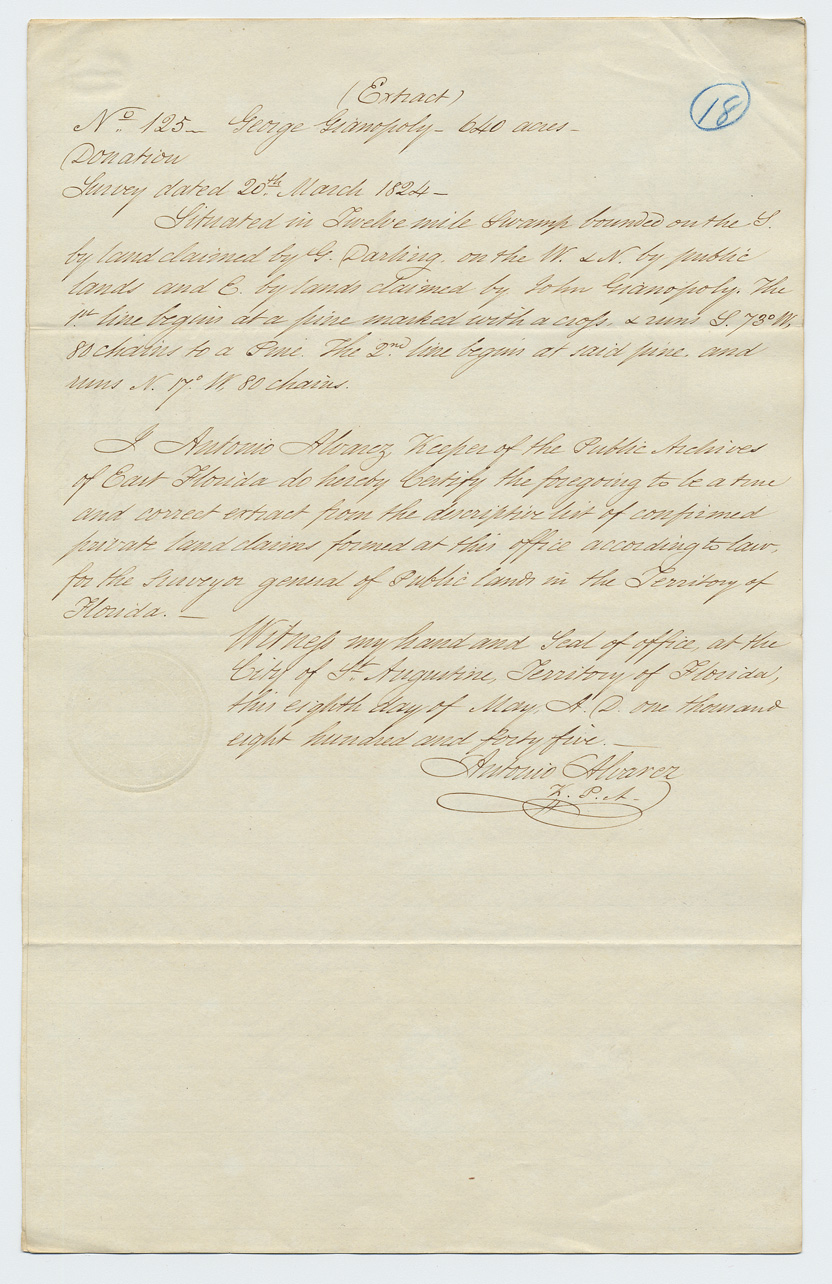 (Extract)
18
No. 125 – George Gianopoly – 640 acres –
Donation
Survey dated 20th March 1824 –
Situated in Twelve mile Swamp bounded on the S.
by land claimed by G. Darling, on the W. & N. by public
lands and E. by lands claimed by John Gianopoly. The
1st line begins at a pine marked with a cross, & runs S. 73° W.
80 chains to a Pine. The 2nd line begins at said pine, and
runs N. 17° W. 80 chains.
I Antonio Alvarez, Keeper of the Public Archives
of East Florida do hereby Certify the foregoing to be a true
and correct extract from the descriptive list of confirmed
private land claims formed at this office according to law,
for the Surveyor general of Public lands in the Territory of
Florida. –
Witness my hand and Seal of office, at the
City of St. Augustine, Territory of Florida,
this eighth day of May, A. D. one thousand
eight hundred and forty five. –
Antonio Alvarez
K. P. A –